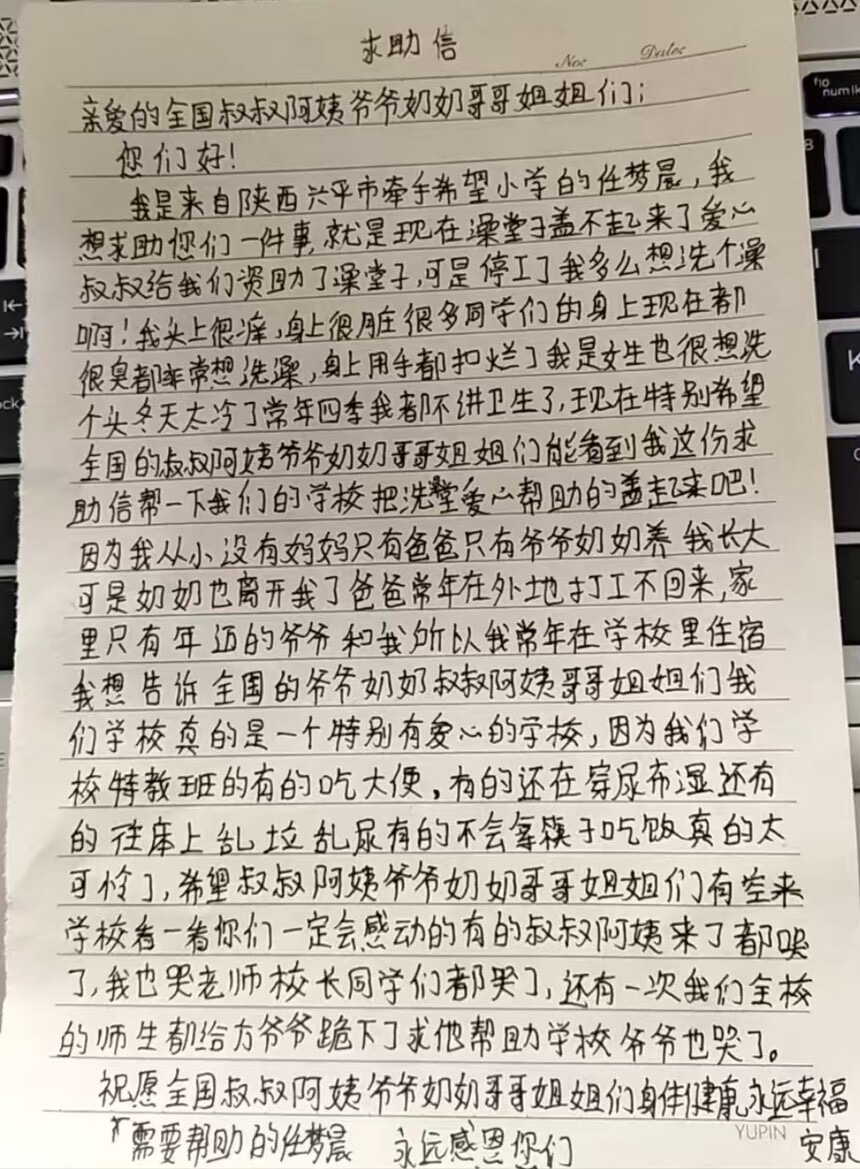 求助信
No:
Date:
亲爱的全国叔叔阿姨爷爷奶奶哥哥姐姐们;
您们好!
我是来自陕西兴平市牵手希望小学的任梦晨,我
想求助您们一件事,就是现在澡堂子盖不起来了爱心
叔叔给我们资助了澡堂子,可是停工了我多么想洗个澡
啊!我头上很痒,身上很脏很多同学们的身上现在都
很臭都非常想洗澡,身上用手都抠烂了我是女生也很想洗
个头冬天太冷了常年四季我都不讲卫生了,现在特别希望
全国的叔叔阿姨爷爷奶奶哥哥姐姐们能看到我这份求
助信帮一下我们的学校把洗澡堂爱心帮助的盖起来吧!
因为我从小没有妈妈只有爸爸只有爷爷奶奶养我长大
可是奶奶也离开我了爸爸常年在外地打工不回来,家
里只有年迈的爷爷和我所以我常年在学校里住宿
我想告诉全国的爷爷奶奶叔叔阿姨哥哥姐姐们我
们学校真的是一个特别有爱心的学校,因为我们学
校特教班的有的吃大便,有的还在穿尿布湿还有
的往床上乱拉乱尿有的不会拿筷子吃饭真的太
可怜了,希望叔叔阿姨爷爷奶奶哥哥姐姐们有空来
学校看一看你们一定会感动的有的叔叔阿姨来了都哭
了,我也哭老师校长同学们都哭了,还有一次我们全校
的师生都给方爷爷跪下了求他帮助学校爷爷也哭了。
祝愿全国叔叔阿姨爷爷奶奶哥哥姐姐们身体健康永远幸福
安康
需要帮助的任梦晨 永远感恩您们
YUPIN
f10
num lk
8
K